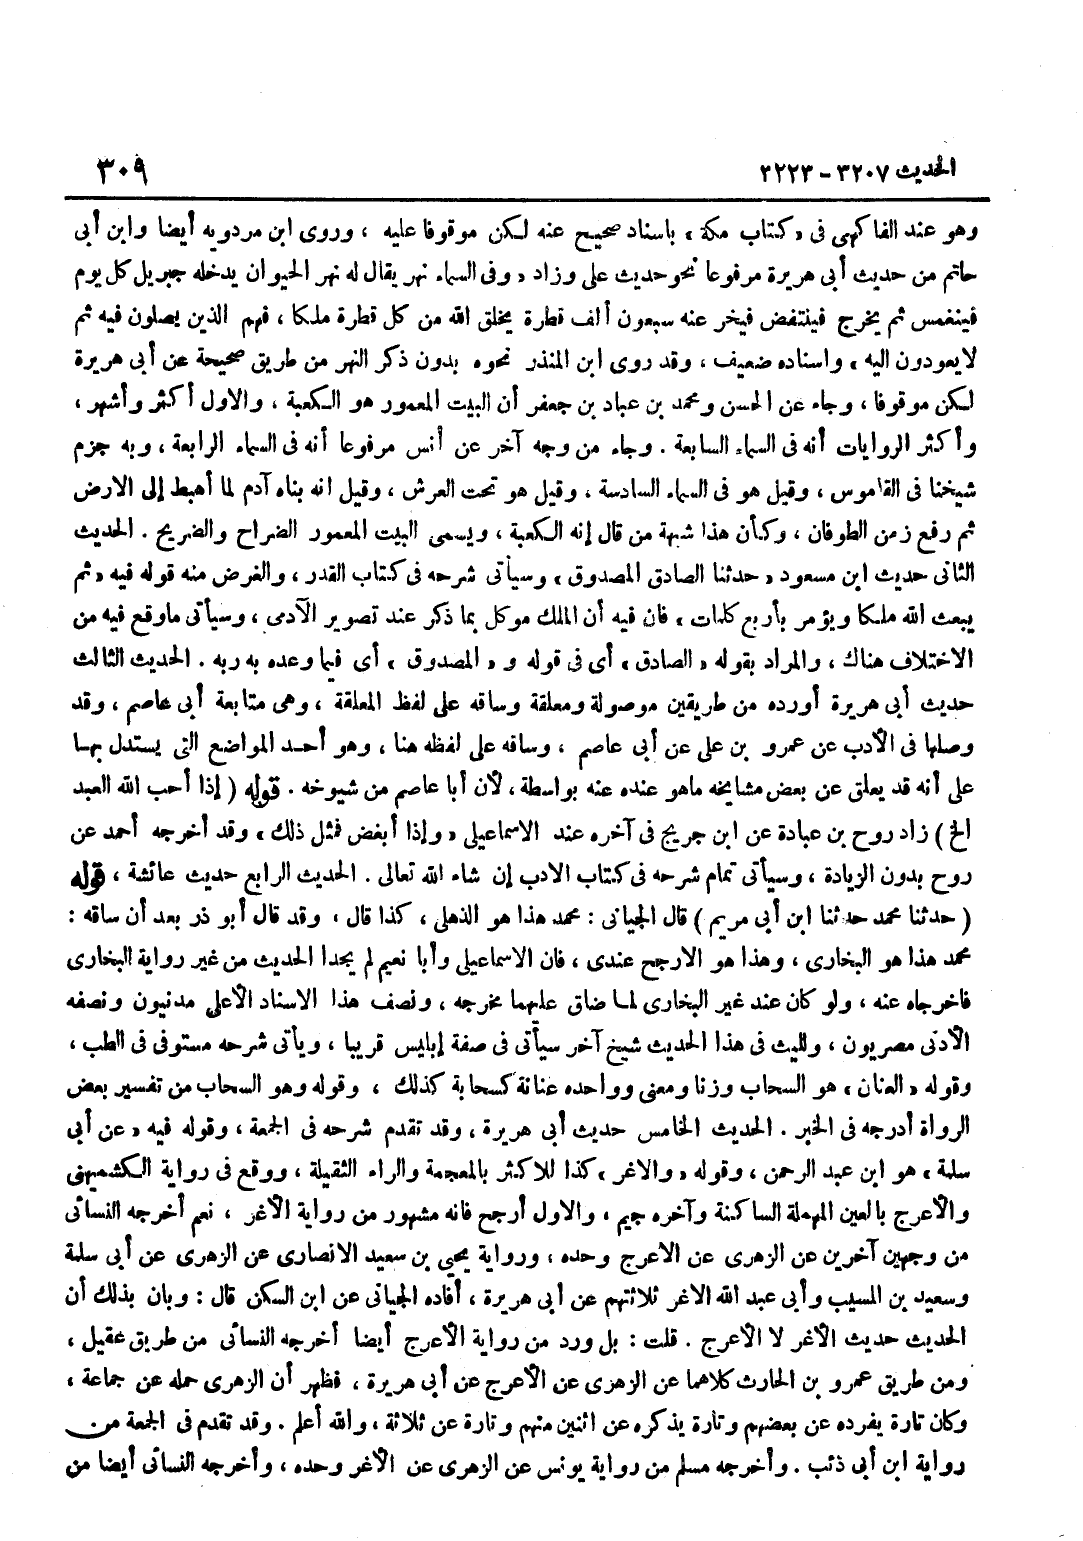 الحديث ٣٢٠٧ - ٣٢٢٣
٣٠٩
وهو عند الفاكهى فى « كتاب مكة » باسناد صحيح عنه لكن موقوفا عليه ، وروى ابن مردويه أيضا وابن أبى
حاتم من حديث أبى هريرة مرفوعا نحو حديث على وزاد « وفى السماء نهر يقال له نهر الحيوان يدخله جبريل كل يوم
فينغمس ثم يخرج فينتفض فيخر عنه سبعون ألف قطرة يخلق الله من كل قطرة ملكا ، فهم الذين يصلون فيه ثم
لا يعودون اليه » واسناده ضعيف ، وقد روى ابن المنذر نحوه بدون ذكر النهر من طريق صحيحة عن أبى هريرة
لكن موقوفا ، وجاء عن الحسن ومحمد بن عباد بن جعفر أن البيت المعمور هو الكعبة ، والاول أكثر وأشهر ،
وأكثر الروايات أنه فى السماء السابعة . وجاء من وجه آخر عن أنس مرفوعا أنه فى السماء الرابعة ، وبه جزم
شيخنا فى القاموس ، وقيل هو فى السماء السادسة ، وقيل هو تحت العرش ، وقيل انه بناه آدم لما أهبط إلى الارض
ثم رفع زمن الطوفان ، وكأن هذا شبهة من قال إنه الكعبة ، ويسمى البيت المعمور الضراح والضريح . الحديث
الثانى حديث ابن مسعود « حدثنا الصادق المصدوق » وسيأتى شرحه فى كتاب القدر ، والغرض منه قوله فيه « ثم
يبعث الله ملكا ويؤمر بأربع كلمات » فان فيه أن الملك موكل بما ذكر عند تصوير الآدمى ، وسيأتى ماوقع فيه من
الاختلاف هناك ، والمراد بقوله « الصادق » أى فى قوله و « المصدوق » أى فيما وعده به ربه . الحديث الثالث
حديث أبى هريرة أورده من طريقين موصولة ومعلقة وساقه على لفظ المعلقة ، وهى متابعة أبى عاصم ، وقد
وصلها فى الأدب عن عمرو بن على عن أبى عاصم ، وساقه على لفظه هنا ، وهو أحد المواضع التى يستدل بها
على أنه قد يعلق عن بعض مشايخه ماهو عنده عنه بواسطة ، لأن أبا عاصم من شيوخه . قوله ( إذا أحب الله العبد
الخ ) زاد روح بن عبادة عن ابن جريج فى آخره عند الاسماعيلى « وإذا أبغض فمثل ذلك » وقد أخرجه أحمد عن
روح بدون الزيادة ، وسيأتى تمام شرحه فى كتاب الادب إن شاء الله تعالى . الحديث الرابع حديث عائشة ، قوله
( حدثنا محمد حدثنا ابن أبى مريم ) قال الجيانى : محمد هذا هو الذهلى ، كذا قال ، وقد قال أبو ذر بعد أن ساقه :
محمد هذا هو البخارى ، وهذا هو الارجح عندى ، فان الاسماعيلى وأبا نعيم لم يجدا الحديث من غير رواية البخارى
فاخرجاه عنه ، ولو كان عند غير البخارى لما ضاق عليهما مخرجه ، ونصف هذا الاسناد الأعلى مدنيون ونصفه
الأدنى مصريون ، ولليث فى هذا الحديث شيخ آخر سيأتى فى صفة إبليس قريبا ، ويأتى شرحه مستوفى فى الطب ،
وقوله « العنان » هو السحاب وزنا ومعنى وواحده عنانة كسحابة كذلك ، وقوله وهو السحاب من تفسير بعض
الرواة أدرجه فى الخبر . الحديث الخامس حديث أبى هريرة ، وقد تقدم شرحه فى الجمعة ، وقوله فيه « عن أبى
سلمة » هو ابن عبد الرحمن ، وقوله « والاغر » كذا للاكثر بالمعجمة والراء الثقيلة ، ووقع فى رواية الكشميهنى
والأعرج بالعين المهملة الساكنة وآخره جيم ، والاول أرجح فانه مشهور من رواية الأغر ، نعم أخرجه النسائى
من وجهين آخرين عن الزهرى عن الاعرج وحده ، ورواية يحيى بن سعيد الانصارى عن الزهرى عن أبى سلمة
وسعيد بن المسيب وأبى عبد الله الاغر ثلاثتهم عن أبى هريرة ، أفاده الجيانى عن ابن السكن قال : وبان بذلك أن
الحديث حديث الأغر لا الأعرج . قلت : بل ورد من رواية الأعرج أيضا أخرجه النسائى من طريق عقيل ،
ومن طريق عمرو بن الحارث كلاهما عن الزهرى عن الأعرج عن أبى هريرة ، فظهر أن الزهرى حمله عن جماعة ،
وكان تارة يفرده عن بعضهم وتارة يذكره عن اثنين منهم وتارة عن ثلاثة ، والله أعلم . وقد تقدم فى الجمعة من
رواية ابن أبى ذئب . وأخرجه مسلم من رواية يونس عن الزهرى عن الأغر وحده ، وأخرجه النسائى أيضا من